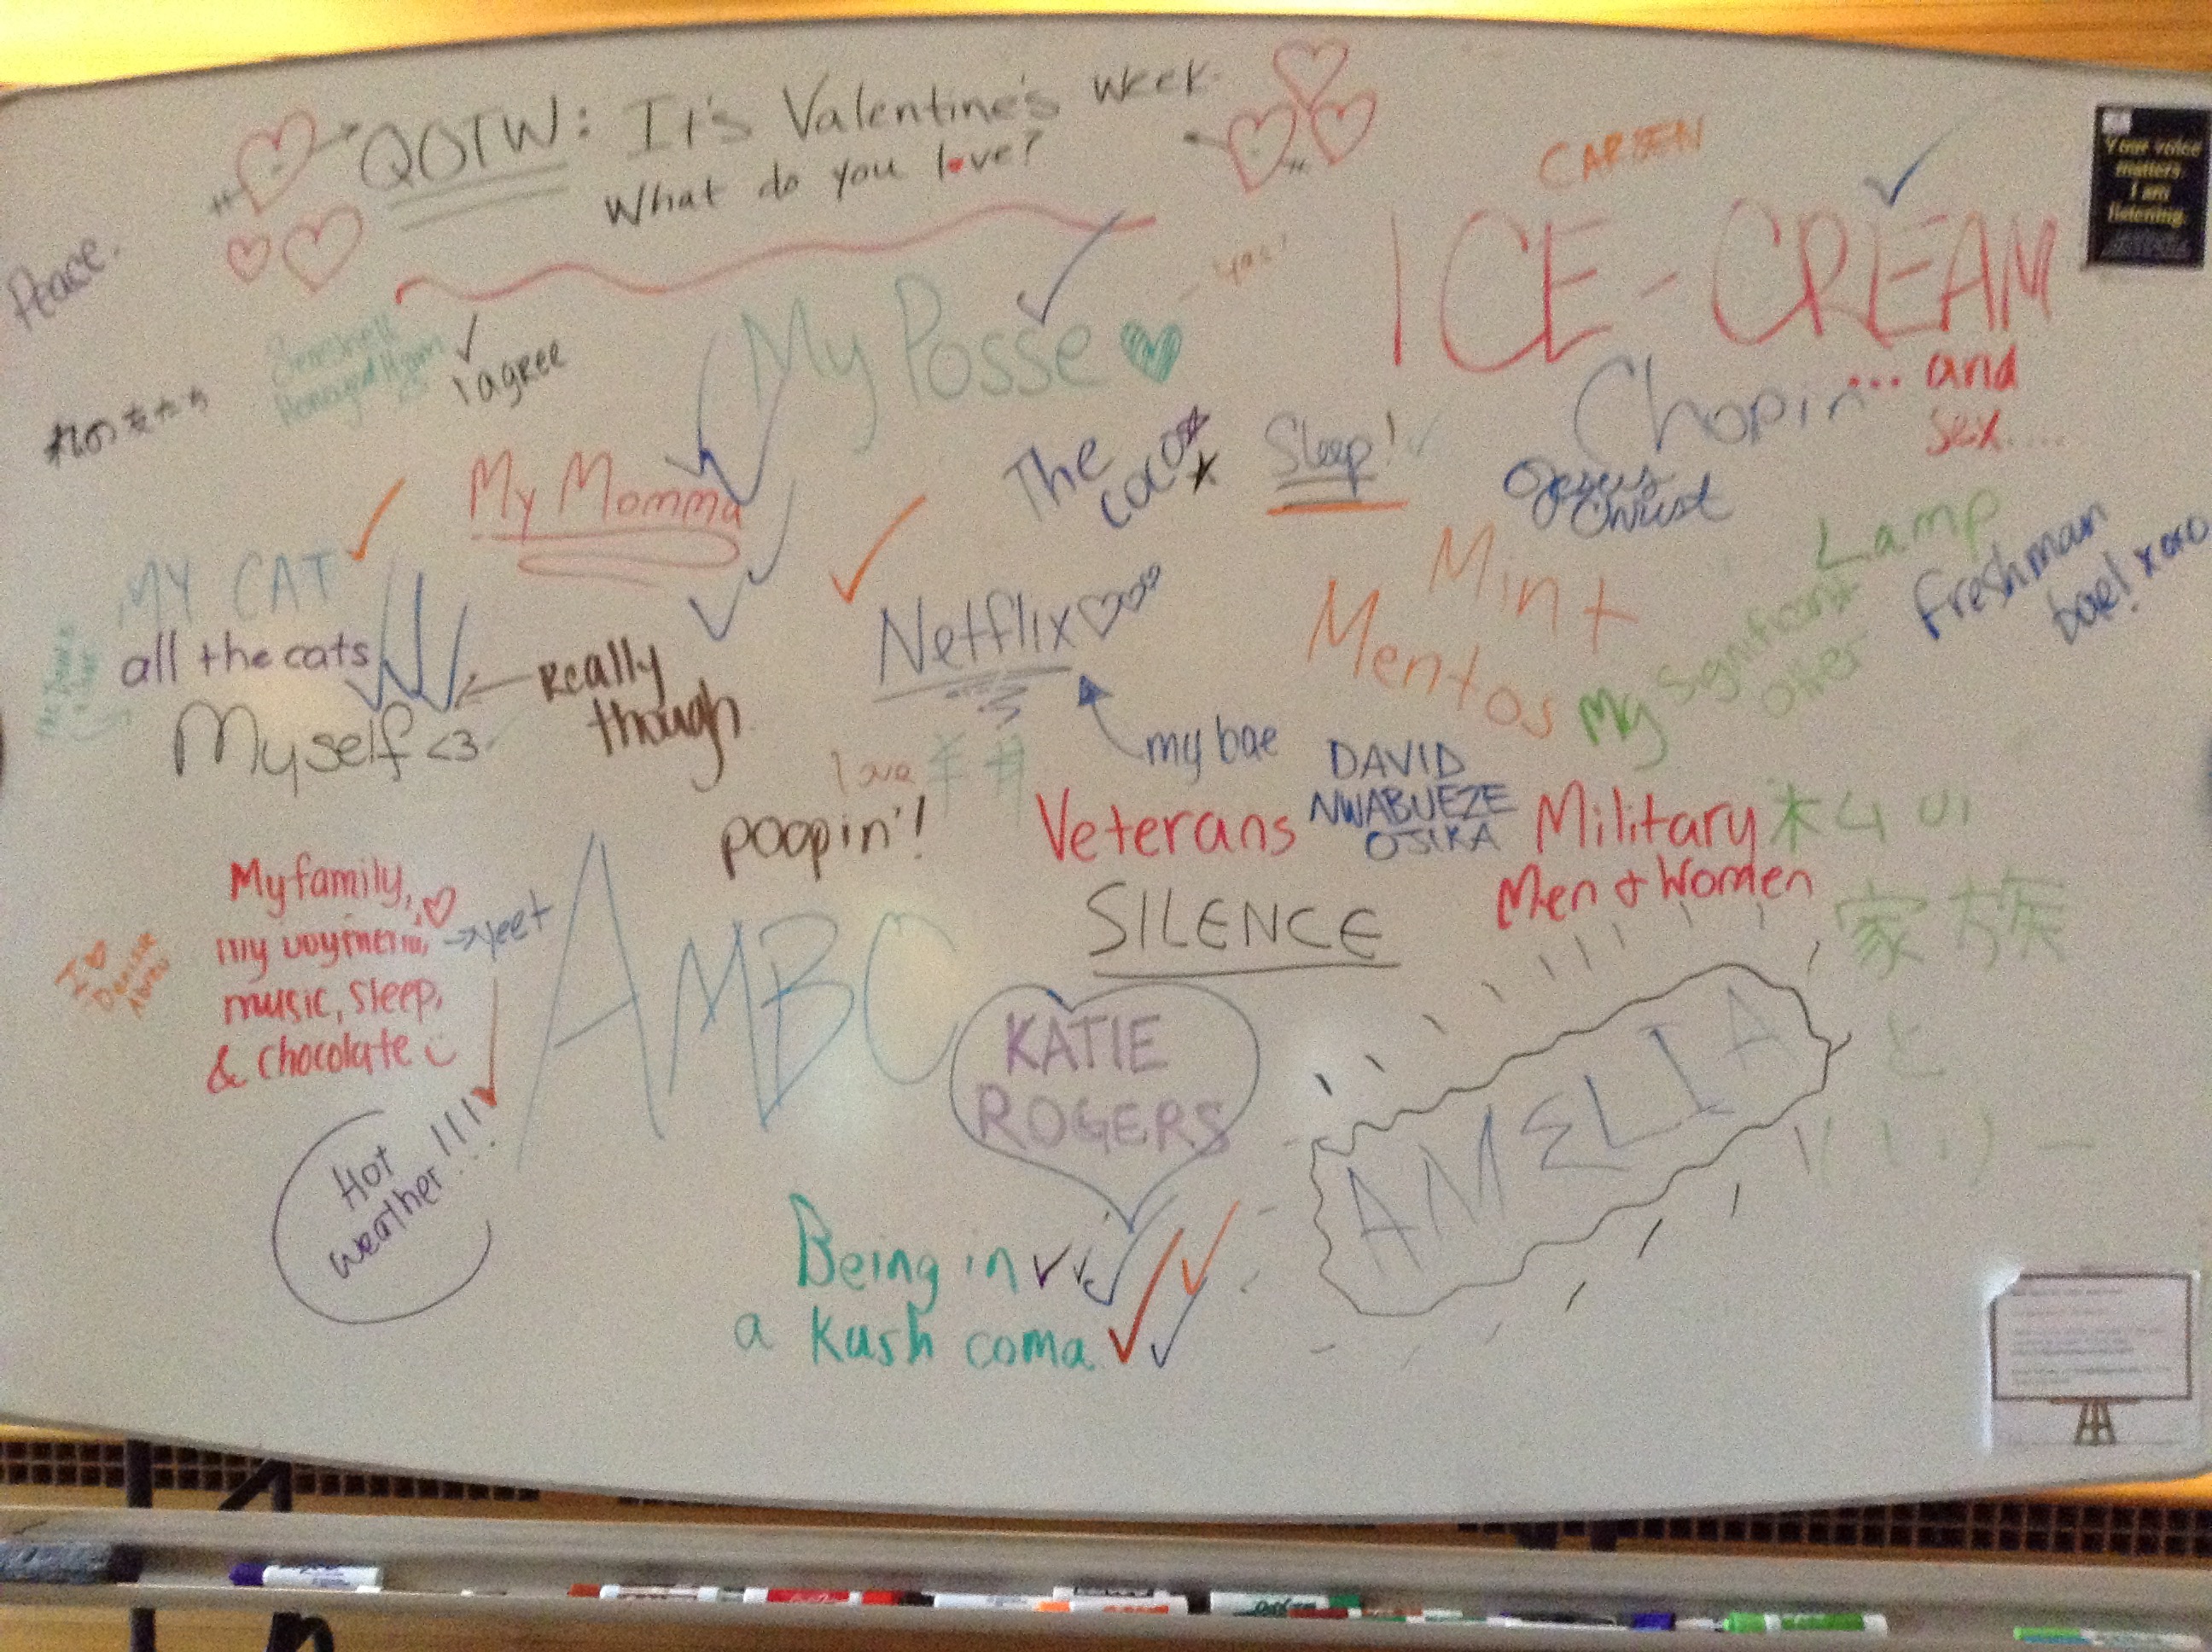 QOTW: It's Valentine's week.
What do you love?
CARSEN
Your voice
matters.
I am
listening.
Peace.
My Posse
yas!
ICE-CREAM
... and
sex....
I agree
Chopin
My Momma
The
coco
Sleep!
Jesus
Christ
Lamp
Freshman
bae! xoxo
MY CAT
all the cats
Myself <3
Really
though
Netflix
my bae
Mint
Mentos
My Significant
Other
love
poopin'!
Veterans
DAVID
NWABUEZE
OJIKA
Military
Men & Women
木ムい
家族
と
SILENCE
My family,
my
music, sleep,
& chocolate
→yeet
I ♡
AMBC
KATIE
ROGERS
AMELIA
Hot
weather!!!
Being in
a Kush coma